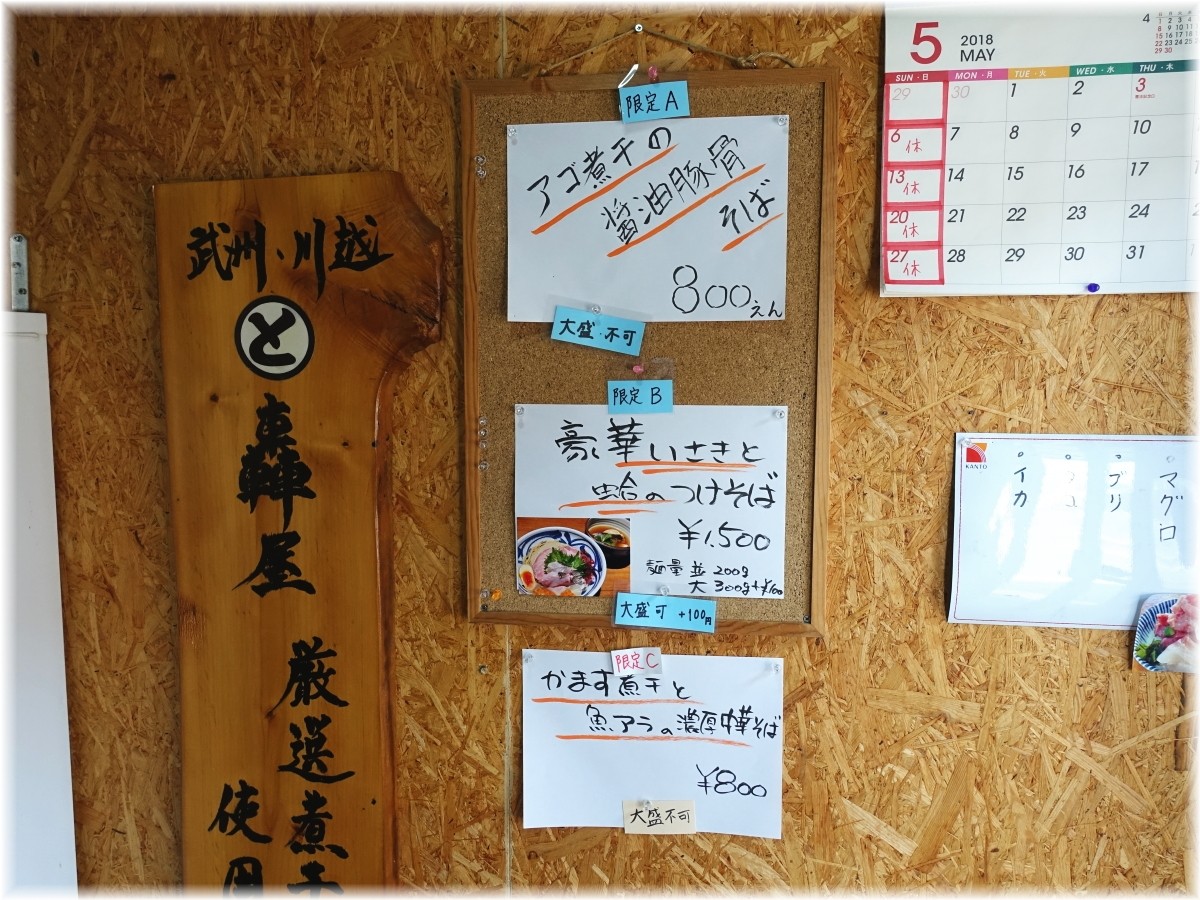 武州・川越
と
轟屋
厳選煮干
使用
限定A
アゴ煮干の
醤油豚骨
そば
800えん
大盛・不可
限定B
豪華いさきと
蛤のつけそば
¥1,500
麺量 並 200g
大 300g+¥100
大盛可 +100円
限定C
かます煮干と
魚アラの濃厚中華そば
¥800
大盛不可
5 2018
MAY
4
SUN・日 MON・月 TUE・火 WED・水 THU・木
29 30 1 2 3
6 休 7 8 9 10
13 休 14 15 16 17
20 休 21 22 23 24
27 休 28 29 30 31
KANTO
マグロ
ブリ
イカ